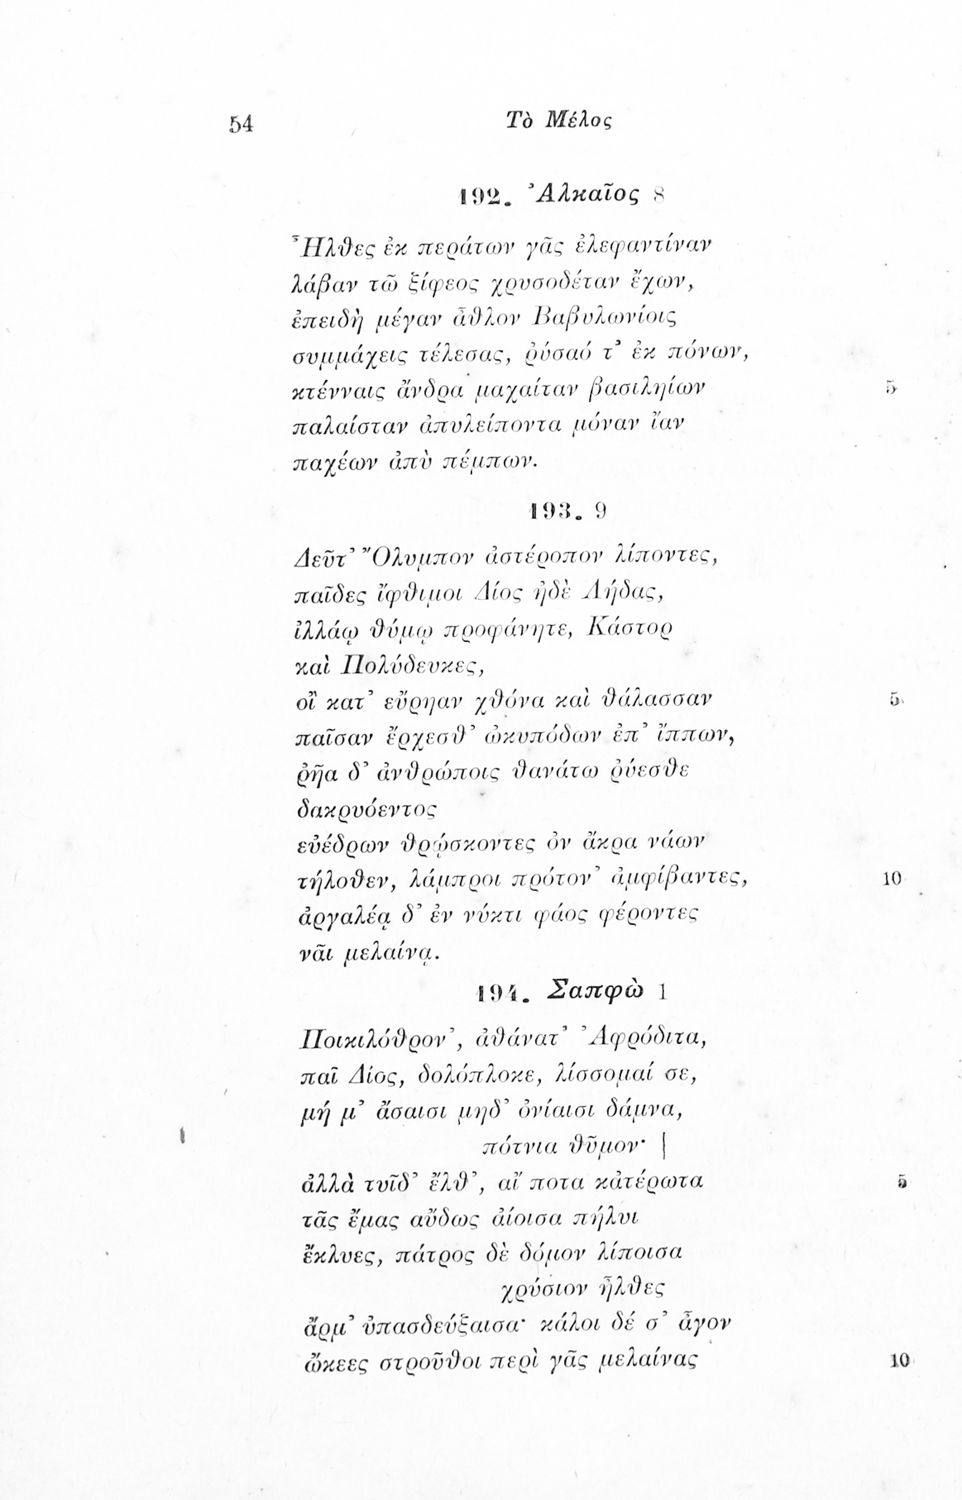 54
Τὸ Μέλος
192. Ἀλκαῖος 8
Ἦλθες ἐκ περάτων γᾶς ἐλεφαντίναν
λάβαν τῶ ξίφεος χρυσοδέταν ἔχων,
ἐπειδὴ μέγαν ἆθλον Βαβυλωνίοις
συμμάχεις τέλεσας, ῥύσαό τ’ ἐκ πόνων,
κτένναις ἄνδρα μαχαίταν βασιληίων
5
παλαίσταν ἀπυλείποντα μόναν ἴαν
παχέων ἀπὺ πέμπων.
193. 9
Δεῦτ’ Ὄλυμπον ἀστέροπον λίποντες,
παῖδες ἴφθιμοι Δίος ἠδὲ Λήδας,
ἰλλάῳ θύμῳ προφάνητε, Κάστορ
καὶ Πολύδευκες,
οἲ κατ’ εὔρηαν χθόνα καὶ θάλασσαν
5
παῖσαν ἔρχεσθ’ ὠκυπόδων ἐπ’ ἴππων,
ῥῆα δ’ ἀνθρώποις θανάτω ῥύεσθε
δακρυόεντος
εὐέδρων θρῴσκοντες ὂν ἄκρα νάων
τήλοθεν, λάμπροι πρότον’ ἀμφίβαντες,
10
ἀργαλέᾳ δ’ ἐν νύκτι φάος φέροντες
νᾶι μελαίνᾳ.
194. Σαπφὼ 1
Ποικιλόθρον’, ἀθάνατ’ Ἀφρόδιτα,
παῖ Δίος, δολόπλοκε, λίσσομαί σε,
μή μ’ ἄσαισι μηδ’ ὀνίαισι δάμνα,
πότνια θῦμον· |
ἀλλὰ τυῖδ’ ἔλθ’, αἴ ποτα κἀτέρωτα
5
τᾶς ἔμας αὔδως ἀίοισα πήλυι
ἔκλυες, πάτρος δὲ δόμον λίποισα
χρύσιον ἦλθες
ἄρμ’ ὐπασδεύξαισα· κάλοι δέ σ’ ἆγον
ὤκεες στροῦθοι περὶ γᾶς μελαίνας
10